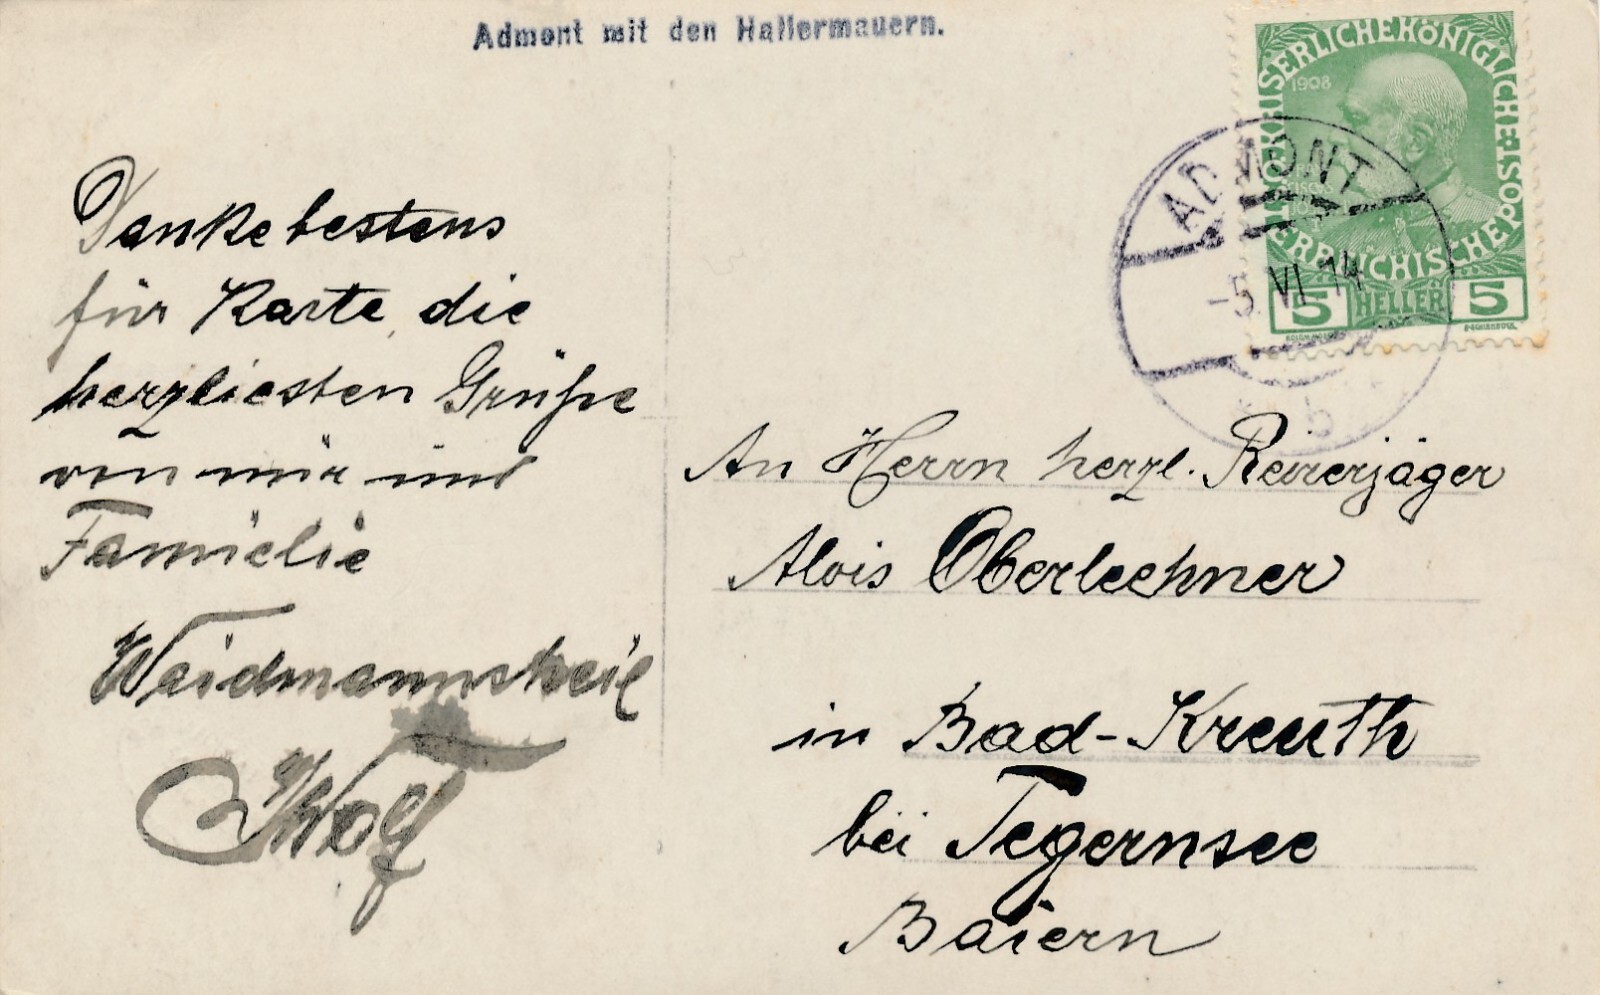 Admont mit den Hallermauern.
KAISERLICHEKÖNIGLICHE ÖSTERREICHISCHE POST
1908
5 HELLER 5
ADMONT
-5 VI 14
b
Danke bestens
für Karte, die
herzliesten Grüße
von mir und
Famielie
Weidmannsheil
Wolf
An Herrn herzl. Reirerjäger
Alois Oberlechner
in Bad-Kreuth
bei Tegernsee
Baiern